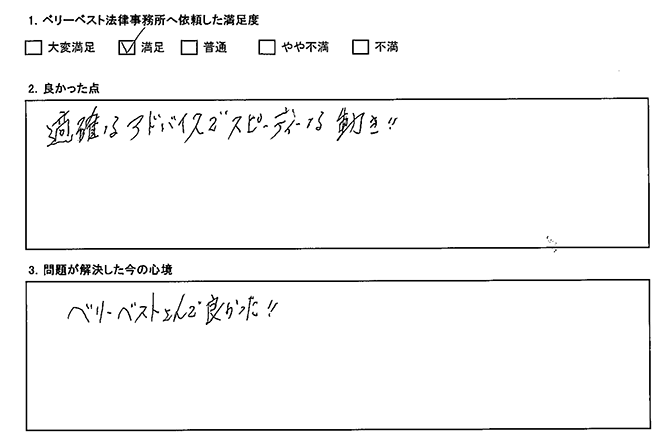 1. ベリーベスト法律事務所へ依頼した満足度
□ 大変満足 ☑ 満足 □ 普通 □ やや不満 □ 不満
2. 良かった点
適確なアドバイスでスピーディーな動き!!
3. 問題が解決した今の心境
ベリーベストさんで良かった!!